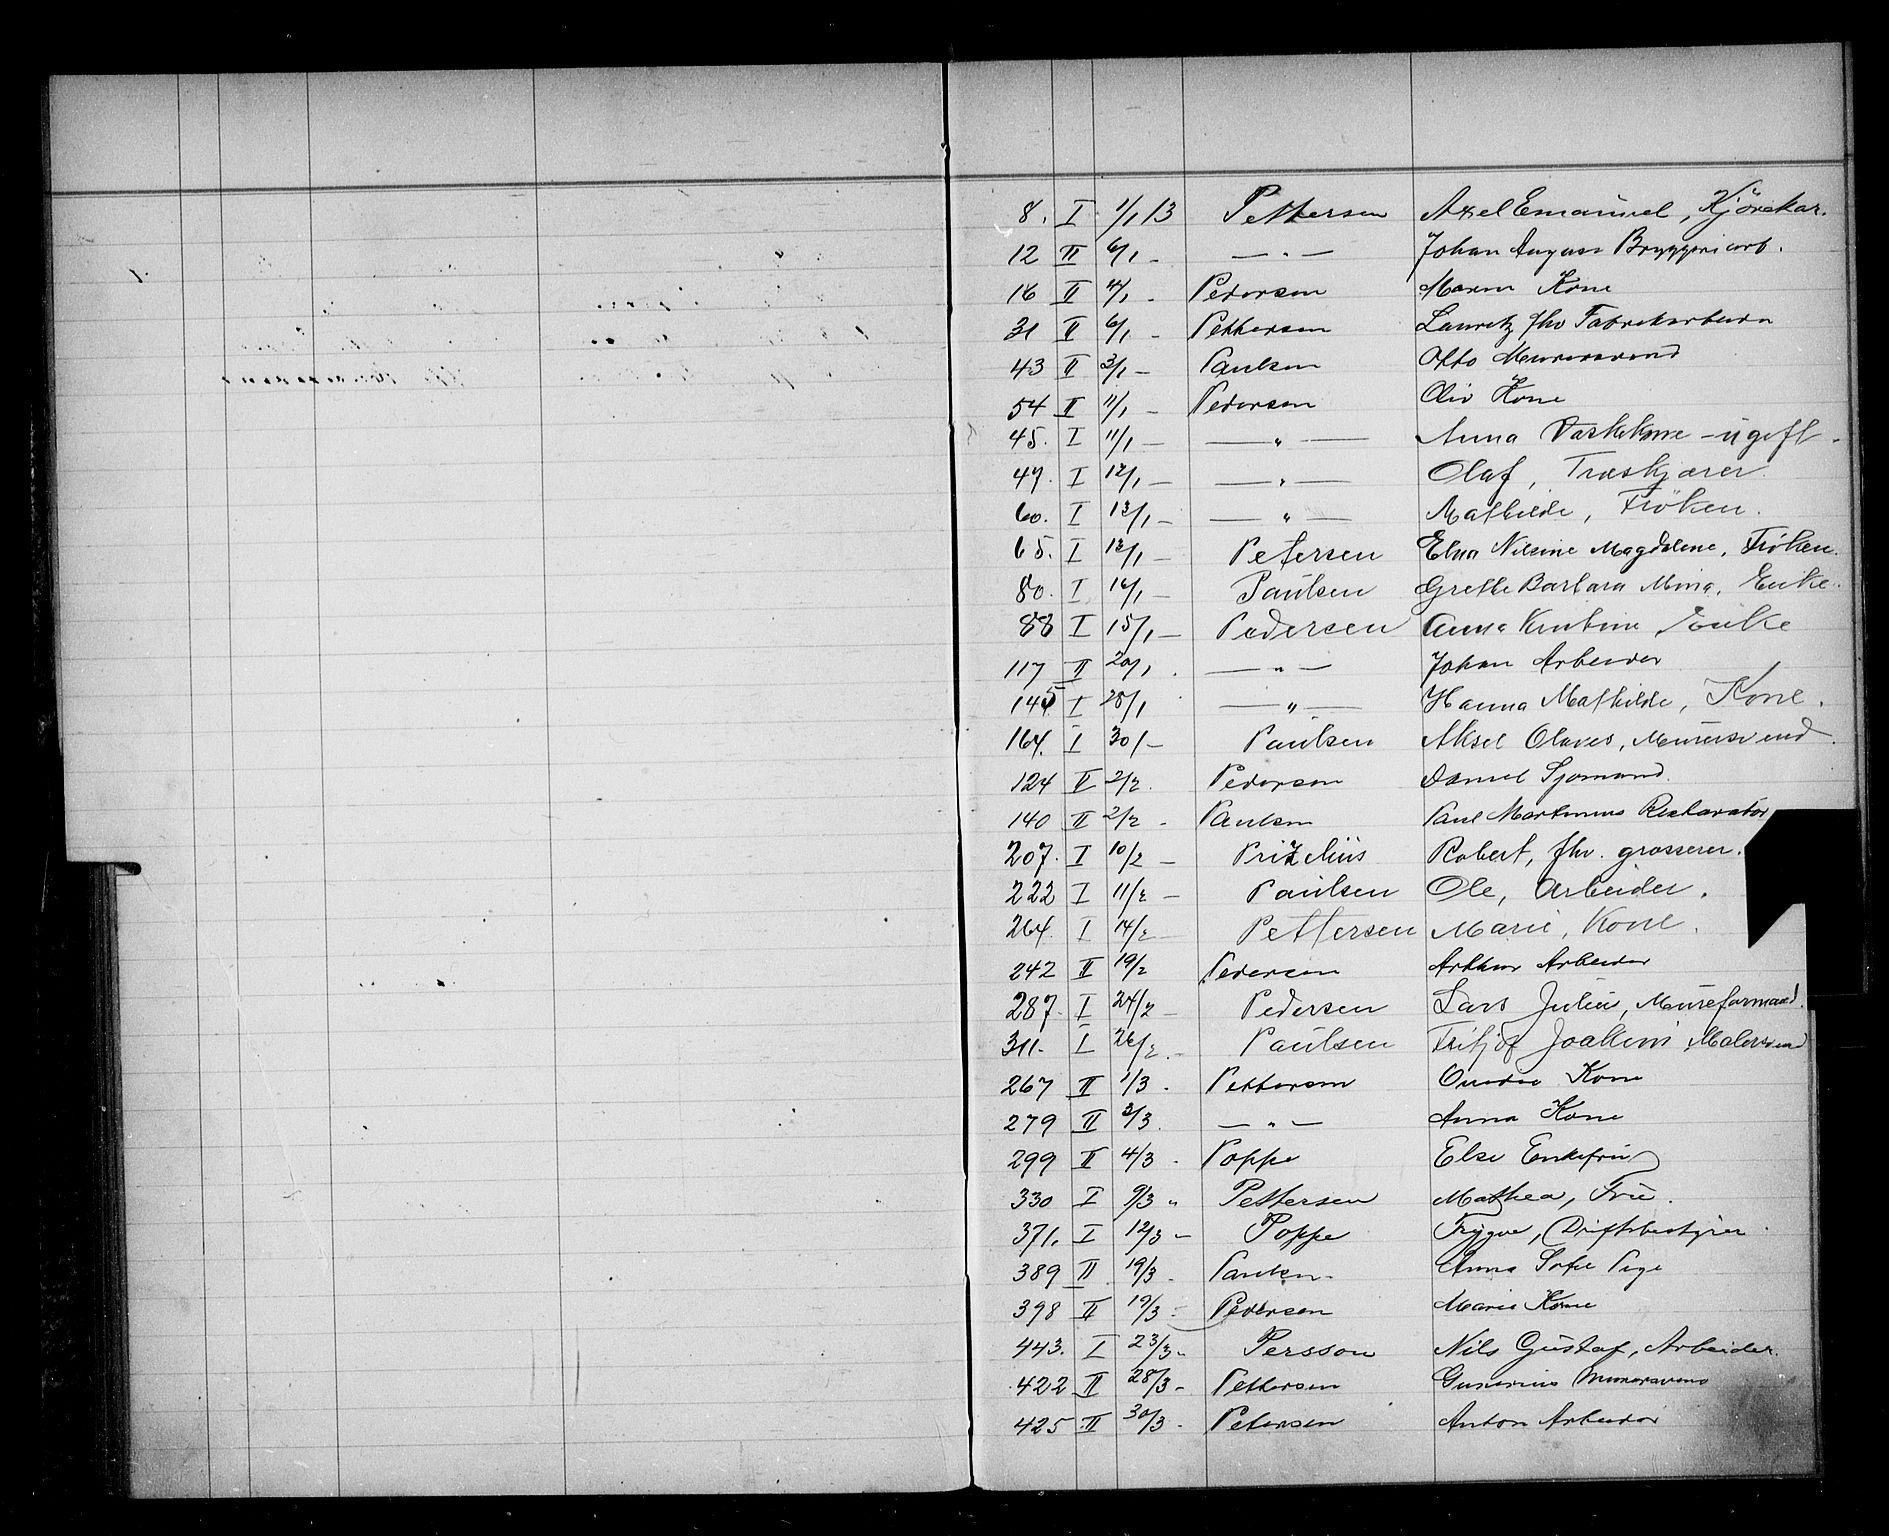 8. I 1/1 13 Pettersen Axel Emanuel, Kjørekar.
12 II 6/1 - — " — Johan August Bryggeriarb.
16 II 4/1 - Pedersen Maren Kone
31 II 6/1 - Pettersen Lauritz fhv Fabrikarbeider
43 II 3/1 - Paulsen Otto Murersvend
54 II 11/1 - Pedersen Oliv Kone
45. I 11/1 - — " — Anna Vaskekone - ugift.
47. I 12/1 - — " — Olaf, Træskjærer
60. I 13/1 - — " — Mathilde, Frøken.
65. I 12/1 - Petersen Elna Nilsine Magdalene, Frøken.
80. I 14/1 - Paulsen Grethe Barbara Mina, Enke.
88 I 15/1 - Pedersen Anna Kristine Enke
117 II 20/1 . — " — Johan Arbeider
145 I 28/1 — " — Hanna Mathilde, Kone.
164. I 30/- Paulsen Aksel Olaves, Murersvend.
124 II 2/2. Pedersen Daniel Sjømand.
140 II 2/2 - Paulsen Paul Martinius Restauratør
207. I 10/2 - Prizelius Robert, fhv. grosserer.
222 I 11/2 - Paulsen Ole, Arbeider.
264. I 14/2 - Pettersen Marie, Kone.
242 II 19/2 Pedersen Arthur Arbeider
287. I 24/2 - Pedersen Lars Julius, Mureformand.
311. I 26/2 - Paulsen Fritjof Joakim, Malersvend
267 II 1/3 . Pettersen Kone
279 II 3/3. — " — Anna Kone
299 II 4/3 - Poppe Else Enkefru
330 I 9/3 " Pettersen Mathea, Frue.
371. I 12/3 - Poppe Trygve, Driftsbestyrer.
389 II 19/3 - Paulsen - Anna Sofie Pige
398 II 19/3 - Pedersen Marie Kone
443. I 23/3 - Persson Nils Gustaf, Arbeider.
422 II 28/3 - Pettersen Gunerius Murersvend
425 II 30/3 - Petersen Anton Arbeider